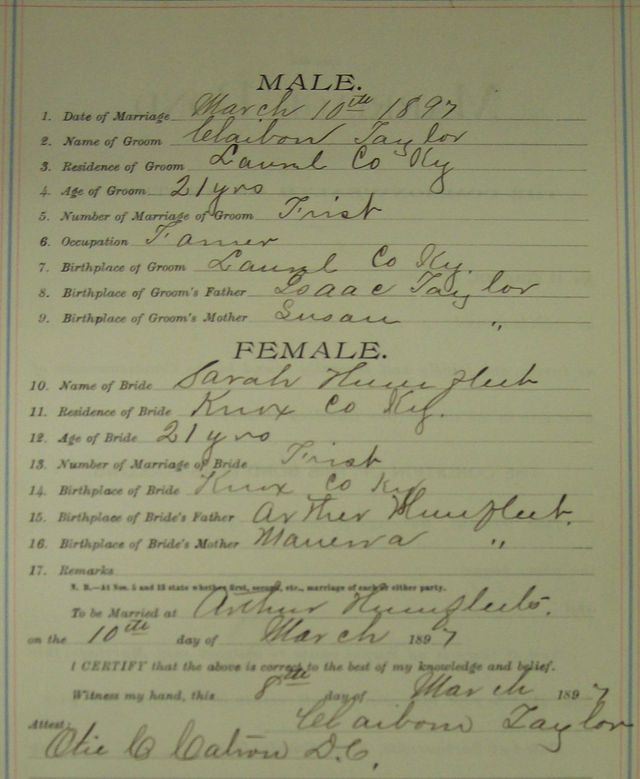 MALE.
1. Date of Marriage March 10th 1897
2. Name of Groom Claibon Taylor
3. Residence of Groom Laurel Co Ky
4. Age of Groom 21 yrs
5. Number of Marriage of Groom Frist
6. Occupation Farmer
7. Birthplace of Groom Laurel Co Ky.
8. Birthplace of Groom's Father Isaac Taylor
9. Birthplace of Groom's Mother Susan "
FEMALE.
10. Name of Bride Sarah Humfleet
11. Residence of Bride Knox Co Ky.
12. Age of Bride 21 yrs
13. Number of Marriage of Bride Frist
14. Birthplace of Bride Knox Co Ky
15. Birthplace of Bride's Father Arther Humfleet.
16. Birthplace of Bride's Mother "
17. Remarks
N. B.—At Nos. 5 and 13 state whether first, second, etc., marriage of each or either party.
To be Married at Arthur Humfleets.
on the 10th day of March 1897
I CERTIFY that the above is correct to the best of my knowledge and belief.
Witness my hand, this 8th day of March 1897
Claibom Taylor
Attest:
Otie C Catron D.C.